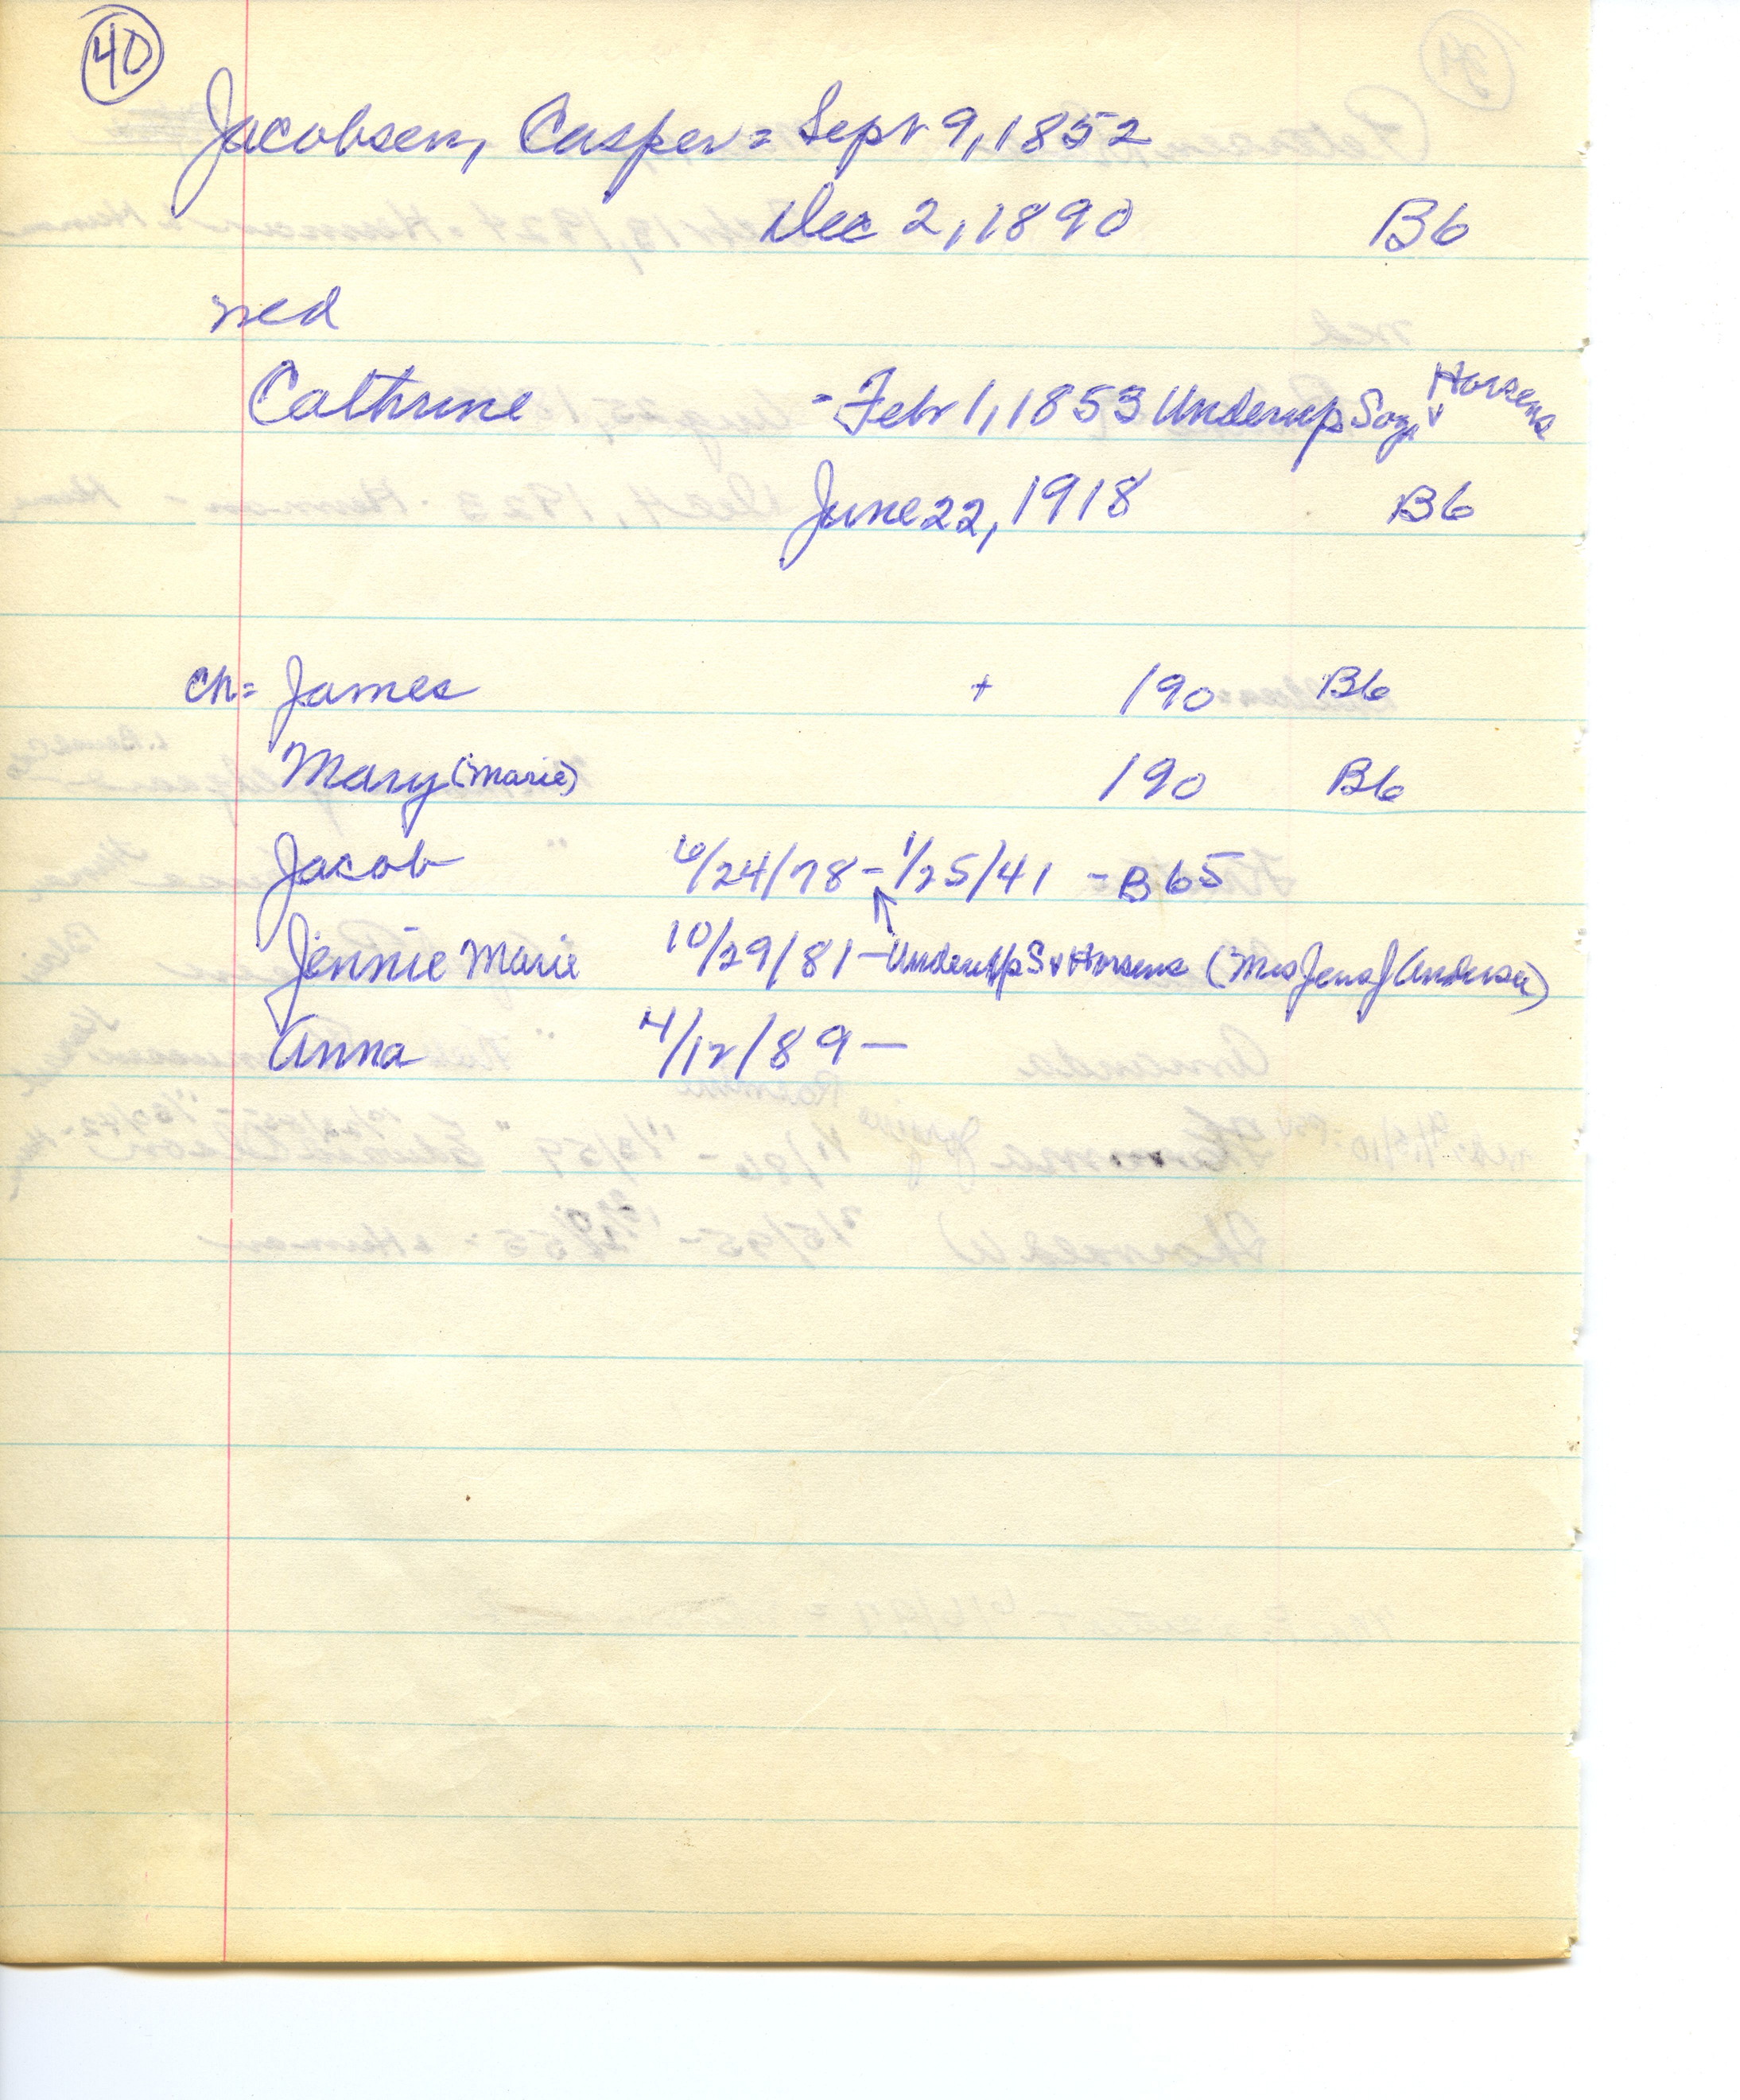 40
Jacobsen, Casper = Sept 9, 1852
Dec 2, 1890 B6
med
Cathrine - Febr 1, 1853 Underup Sog, v Horsens
June 22, 1918 B6
Ch = James + 190 B6
Mary (Marie) 190 B6
Jacob 6/24/78 - 1/25/41 - B65
↑
Jennie Marie 10/29/81 — Underup S v Horsens (Mrs Jens J Andersen)
Anna 4/12/89 —